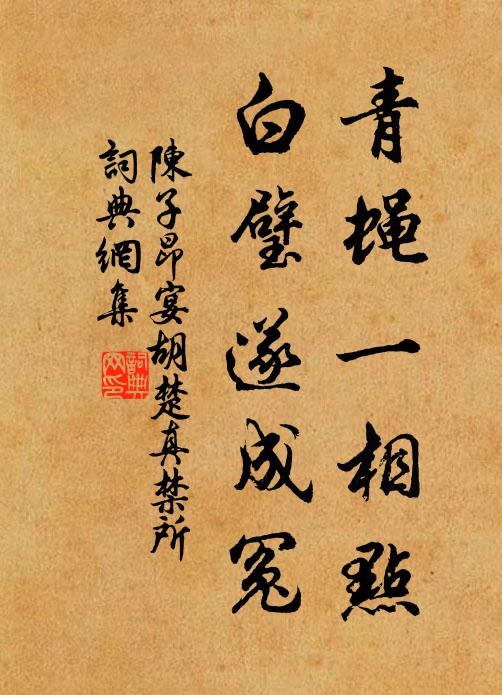 青蝇一相點
白璧遂成冤
陳子昂宴胡楚真禁所
詞典網集
詞典網印